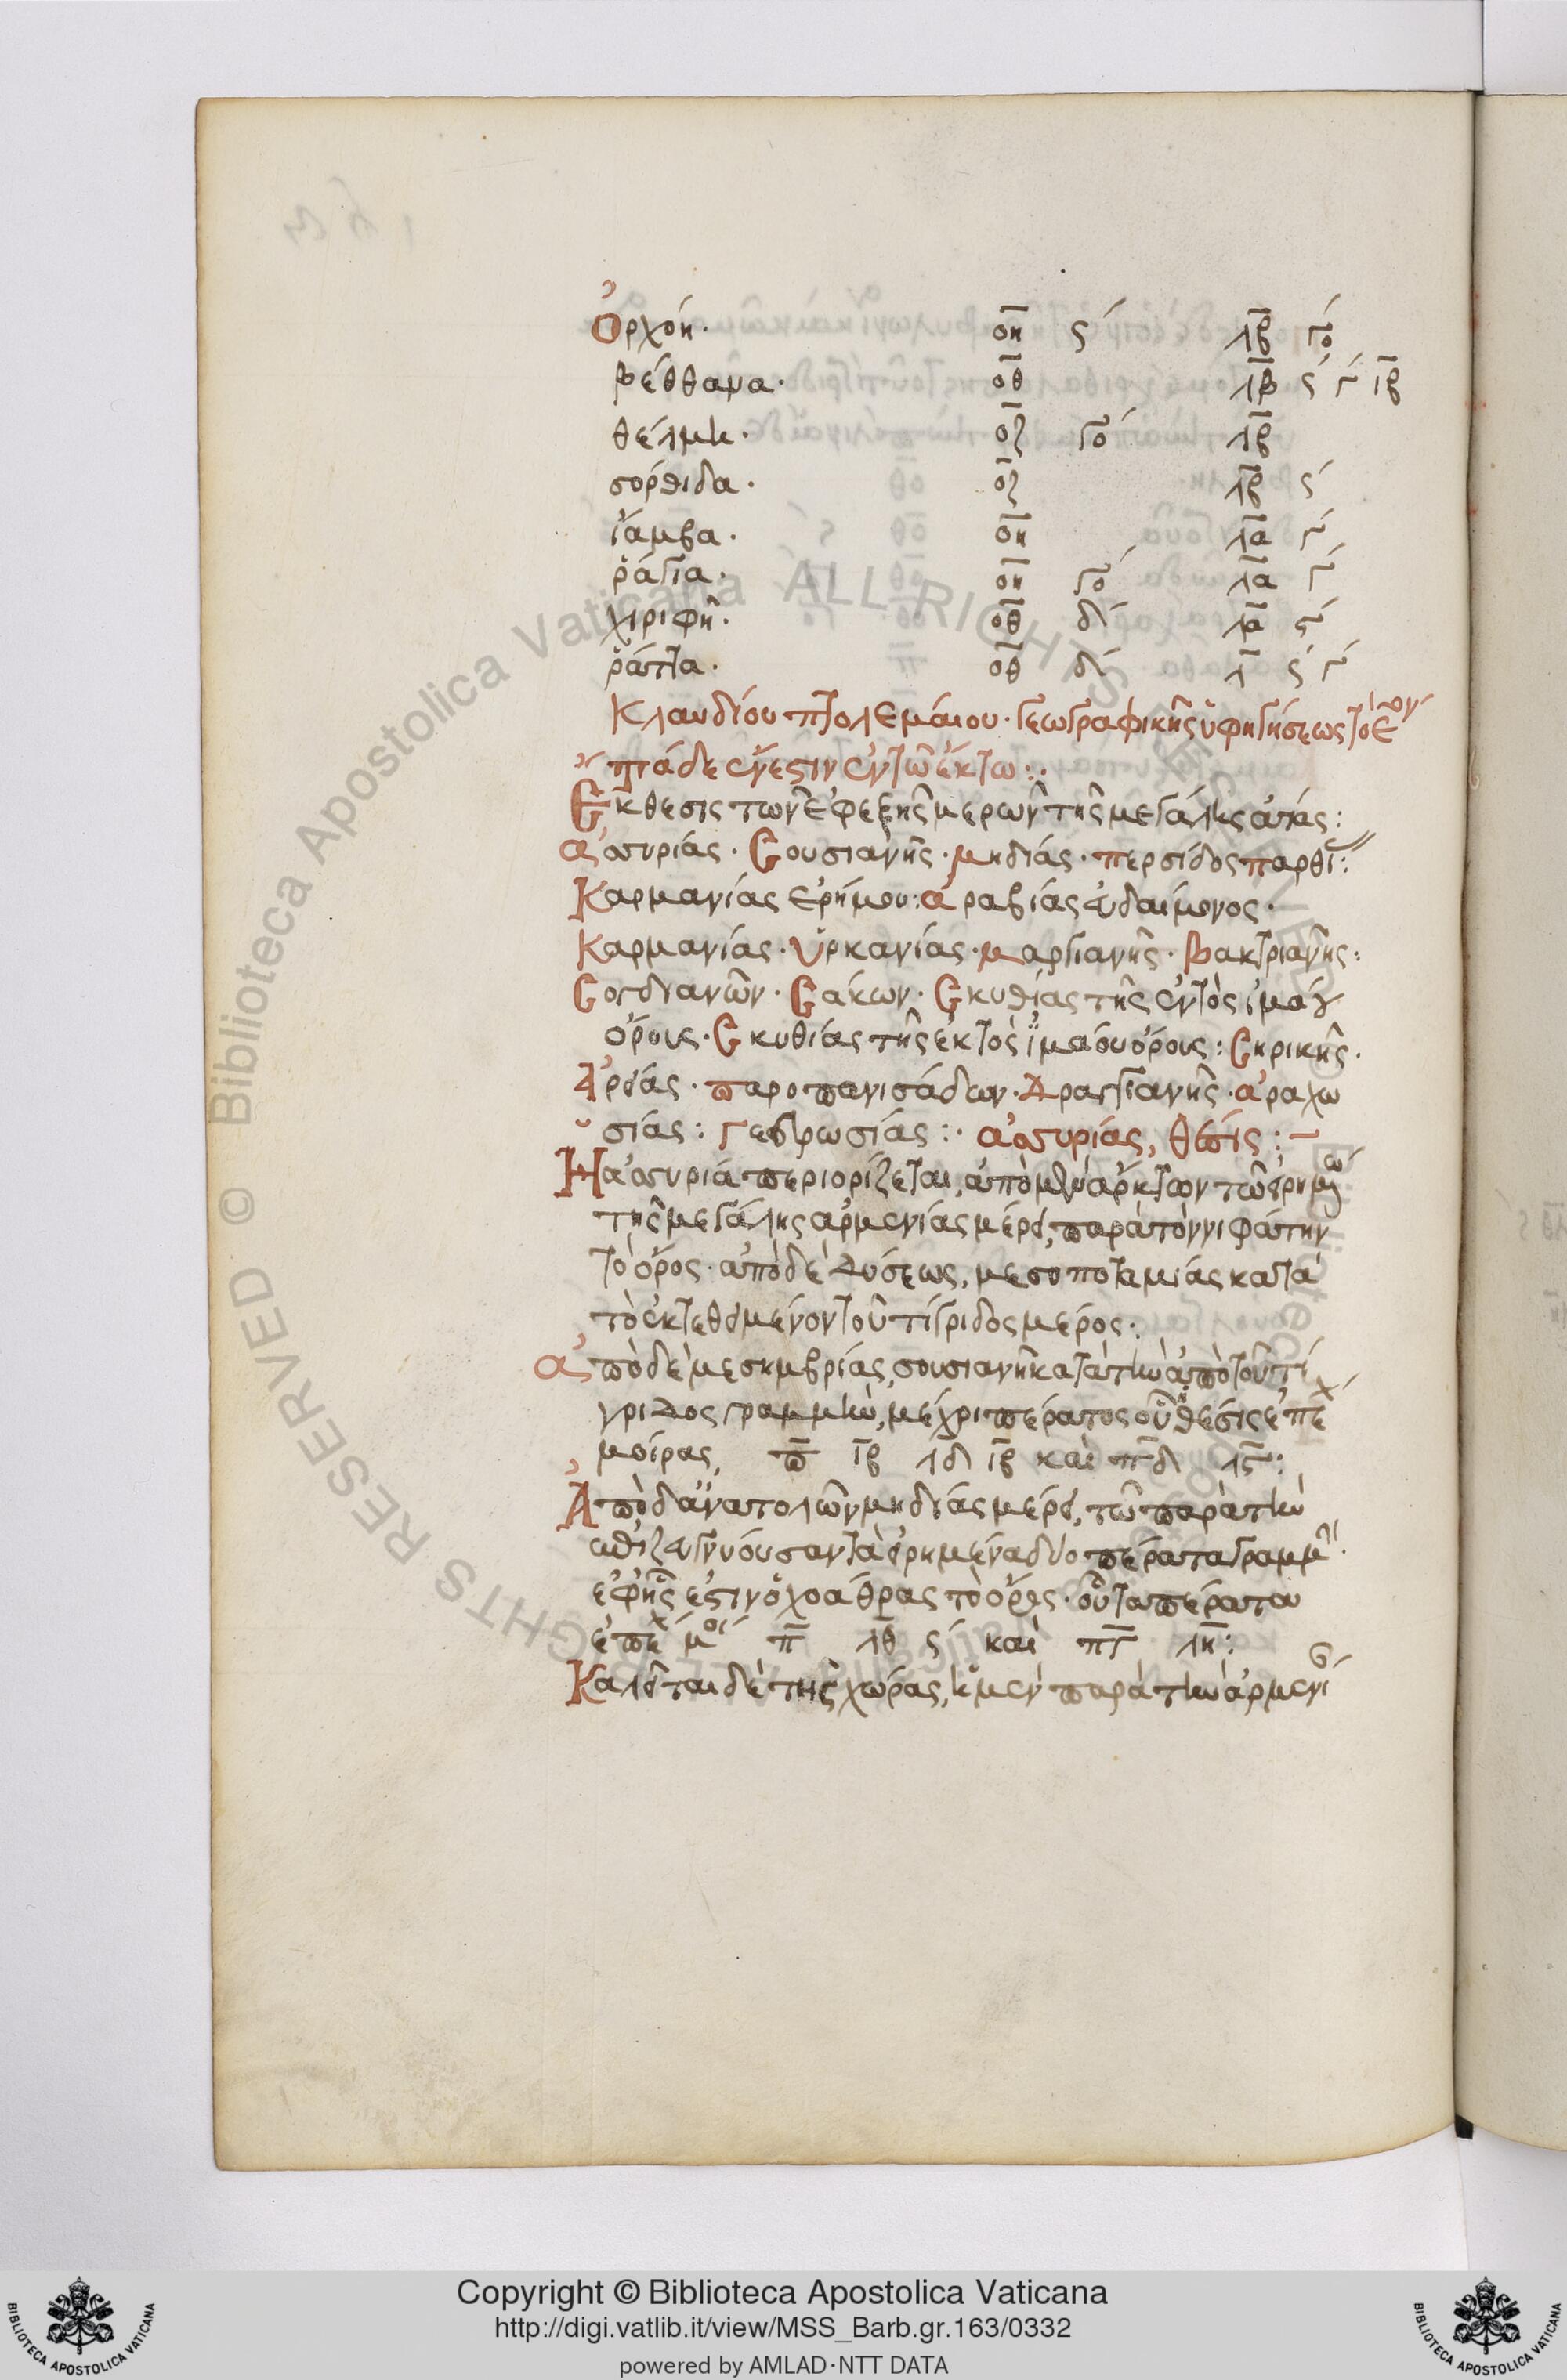 Ὀρχόη· ο̅η̅ ϛ´ λ̅β̅ γο´
βέθθαμα· ο̅θ̅ λ̅β̅ ϛ´ γ´ ι̅β̅
θέλμη· ο̅ζ̅ γο´ λ̅β̅
σορθιδα· ο̅ζ̅ λ̅β̅ ϛ´
ἴαμβα· ο̅η̅ λ̅α̅ γ´
ῥάγια· ο̅η̅ γο´ λ̅α̅ γ´
χιριφῆ· ο̅θ̅ δ´ λ̅α̅ ϛ´
ῥάττα· ο̅θ̅ δ´ λ̅ ϛ´ γ´
Κλαυδίου πτολεμάιου· γεωγραφικῆς ὑφηγήσεως τὸ ε̅ον
τάδε ἔνεστιν ἐν τῶ ἕκτω:·
Ἔκθεσις τῶν ἐφεξῆς μερῶν τῆς μεγάλης ἀσίας:
ἀσσυρίας· Σουσιανῆς· μηδίας· περσίδος παρθί:
Καρμανίας ἐρήμου: ἀραβίας εὐδαίμονος·
Καρμανίας· Ὑρκανίας· μαργιανῆς· βακτριανῆς:
Σογδιανῶν· Σάκων· Σκυθίας τῆς ἐντὸς ἰμάου
ὄρους· Σκυθίας τῆς ἐκτὸς ἰμάου ὄρους: Σηρικῆς·
Ἀρείας· παροπανισάδων· Δραγγιανῆς· ἀραχω
σίας: Γεδρωσίας:· ἀσσυρίας, θέσις:–
Ἡ ἀσσυρία περιορίζεται, ἀπὸ μὲν ἄρκτων τῶ εἰρημένω
τῆς μεγάλης ἀρμενίας μέρει, παρὰ τὸν νιφάτην
τὸ ὄρος· ἀπὸ δὲ δύσεως, μεσοποταμίας κατὰ
τὸ ἐκτεθειμένον τοῦ τίγριδος μέρος·
ἀπὸ δὲ μεσημβρίας, σουσιανῆ κατὰ τὴν ἀπὸ τοῦ τί
γριδος γραμμὴν, μέχρι πέρατος οὗ ἡ θέσις ἐπέχ
μοίρας, π̅ ι̅β̅ λ̅δ̅ ι̅β̅ καὶ π̅δ̅ λ̅ϛ̅:
Ἀπὸ δ' ἀνατολῶν μηδίας μέρει, τῶ παρὰ τὴν
ἐπιζευγνύουσαν τὰ εἰρημένα δύο πέρατα γραμμ·
ἐφ' ἧς ἐστιν ὁ χοάθρας τὸ ὄρος· οὗ τα πέρατα
ἐπέχ μοί π̅ λ̅θ̅ ϛ´ καὶ π̅γ̅ λ̅η̅:
Καλεῖται δὲ τῆς χώρας, ἡ μὲν παρὰ τὴν ἀρμενί
Copyright © Biblioteca Apostolica Vaticana
http://digi.vatlib.it/view/MSS_Barb.gr.163/0332
powered by AMLAD·NTT DATA